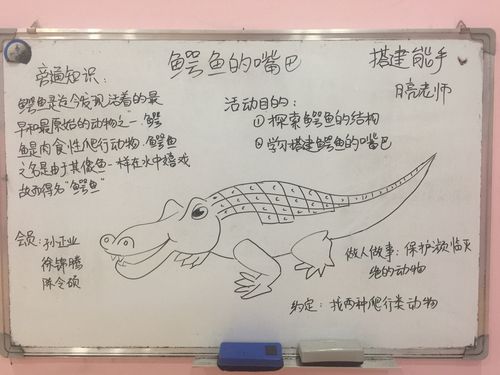 鳄鱼的嘴巴
搭建能手
月亮老师
普通知识：
鳄鱼是迄今发现活着的最
早和最原始的动物之一.鳄
鱼是肉食性爬行动物.鳄鱼
之名是由于其像鱼一样在水中嬉戏
故而得名"鳄鱼"
活动目的：
①探索鳄鱼的结构
②学习搭建鳄鱼的嘴巴
会员：孙正业
徐锦腾
陈令硕
做人做事：保护濒临灭
绝的动物
约定：找两种爬行类动物